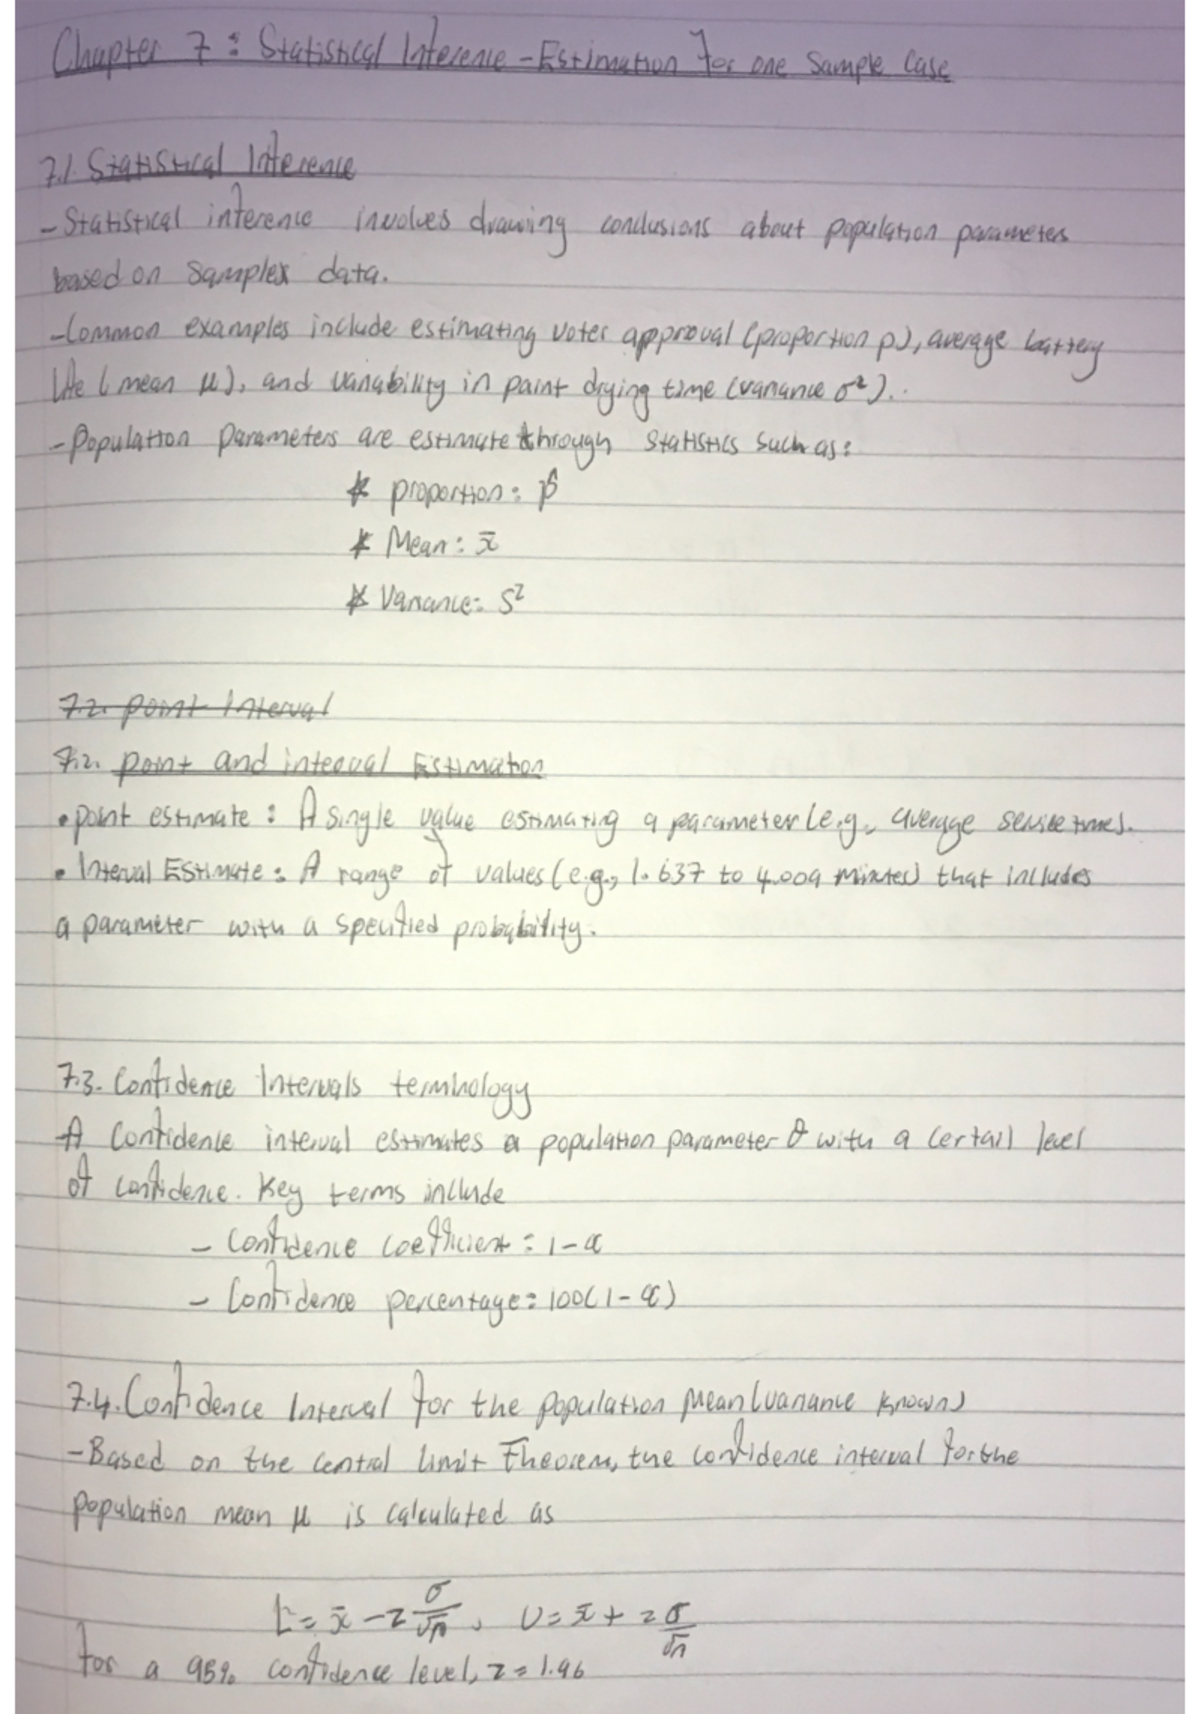 Chapter 7 : Statistical Inference - Estimation for one Sample Case
7.1. Statistical Inference
- Statistical inference involves drawing conclusions about population parameters
based on Sample data.
- Common examples include estimating voter approval (proportion p), average battery
life (mean μ), and variability in paint drying time (variance σ²).
- Population Parameters are estimate through Statistics Such as:
* proportion: p̂
* Mean: x̄
* Variance: S²
7.2. Point Interval
7.2. Point and interval Estimation
• point estimate : A single value estimating a parameter (e.g., average service times).
• Interval Estimate : A range of values (e.g., 1.637 to 4.009 minutes) that includes
a parameter with a specified probability.
7.3. Confidence Intervals terminology
A Confidence interval estimates a population parameter θ with a certail level
of confidence. Key terms include
- Confidence coefficient : 1-α
- Confidence percentage : 100(1-α)
7.4. Confidence Interval for the population Mean (variance known)
- Based on the central limit Theorem, the confidence interval for the
population mean μ is calculated as
L = x̄ - z σ/√n, U = x̄ + z σ/√n
for a 95% confidence level, z = 1.96